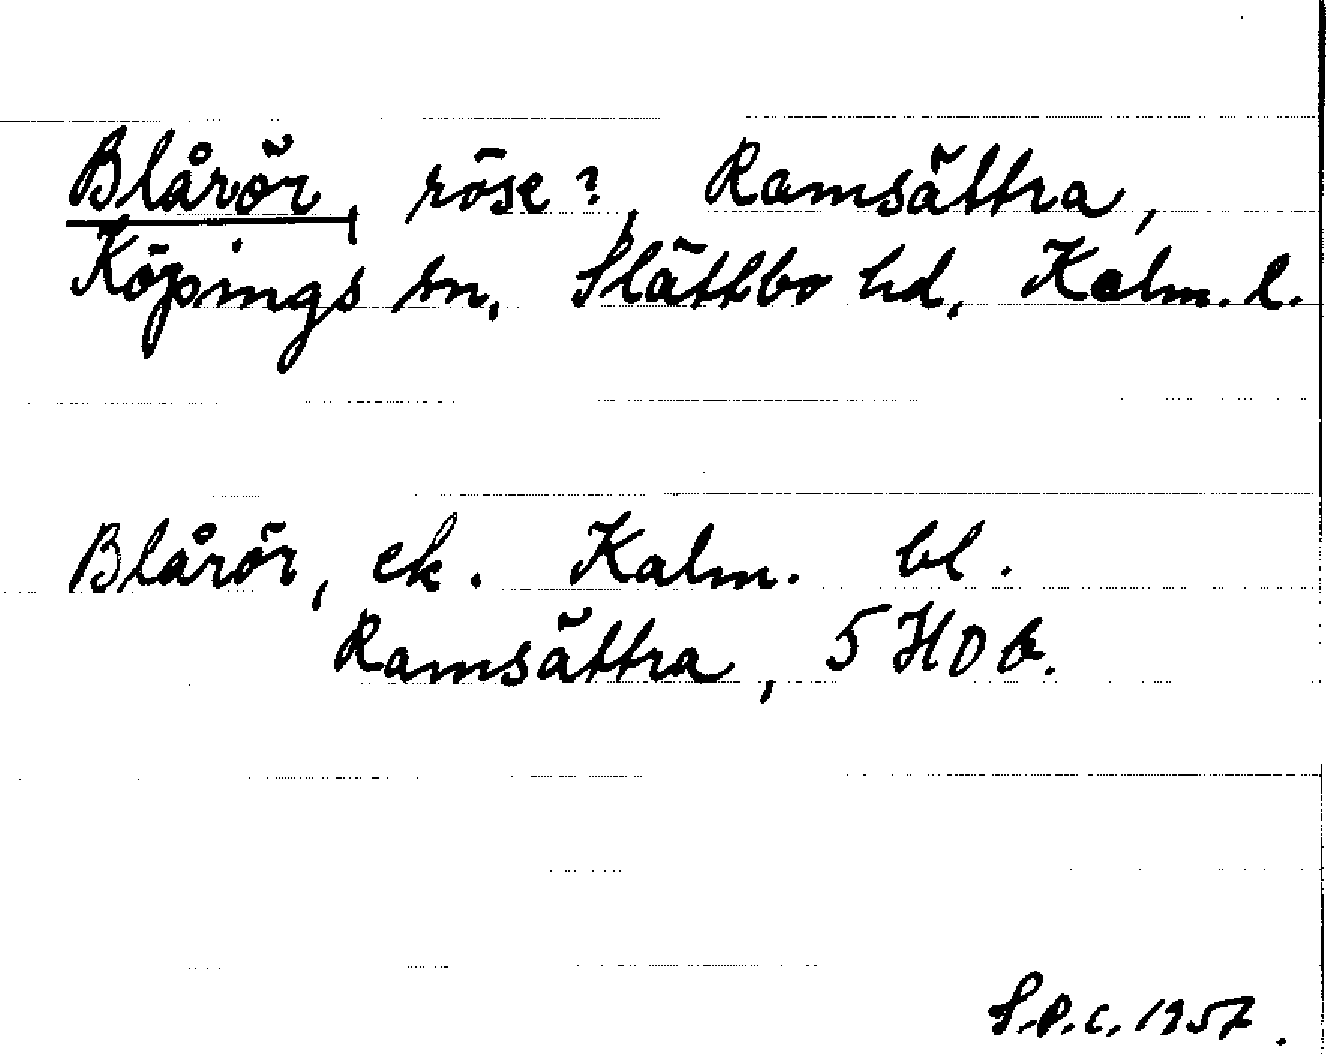 Blårör, röse?, Ramsättra,
Köpings sn, Slättbo hd, Kalm. l.
Blårör, ek. Kalm. bl.
Ramsättra, 5 H0 b.
S.P.C. 1957.